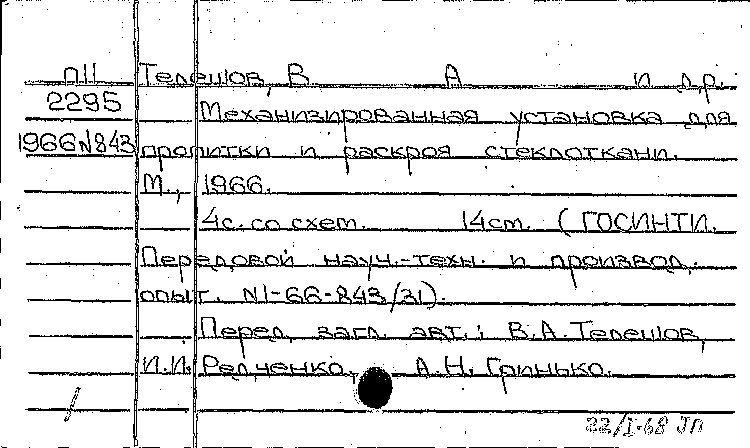 П11 Телешов, В А и др.
2295 Механизированная установка для
1966№843 пропитки и раскроя стеклоткани.
М., 1966.
4с. со схем. 14см. (ГОСИНТИ.
Передовой науч.-техн. и производ.
опыт. №1-66-843/31).
Перед загл. авт.: В.А.Телешов,
И.И. Редченко, А.Н. Гринько.
22/I-68